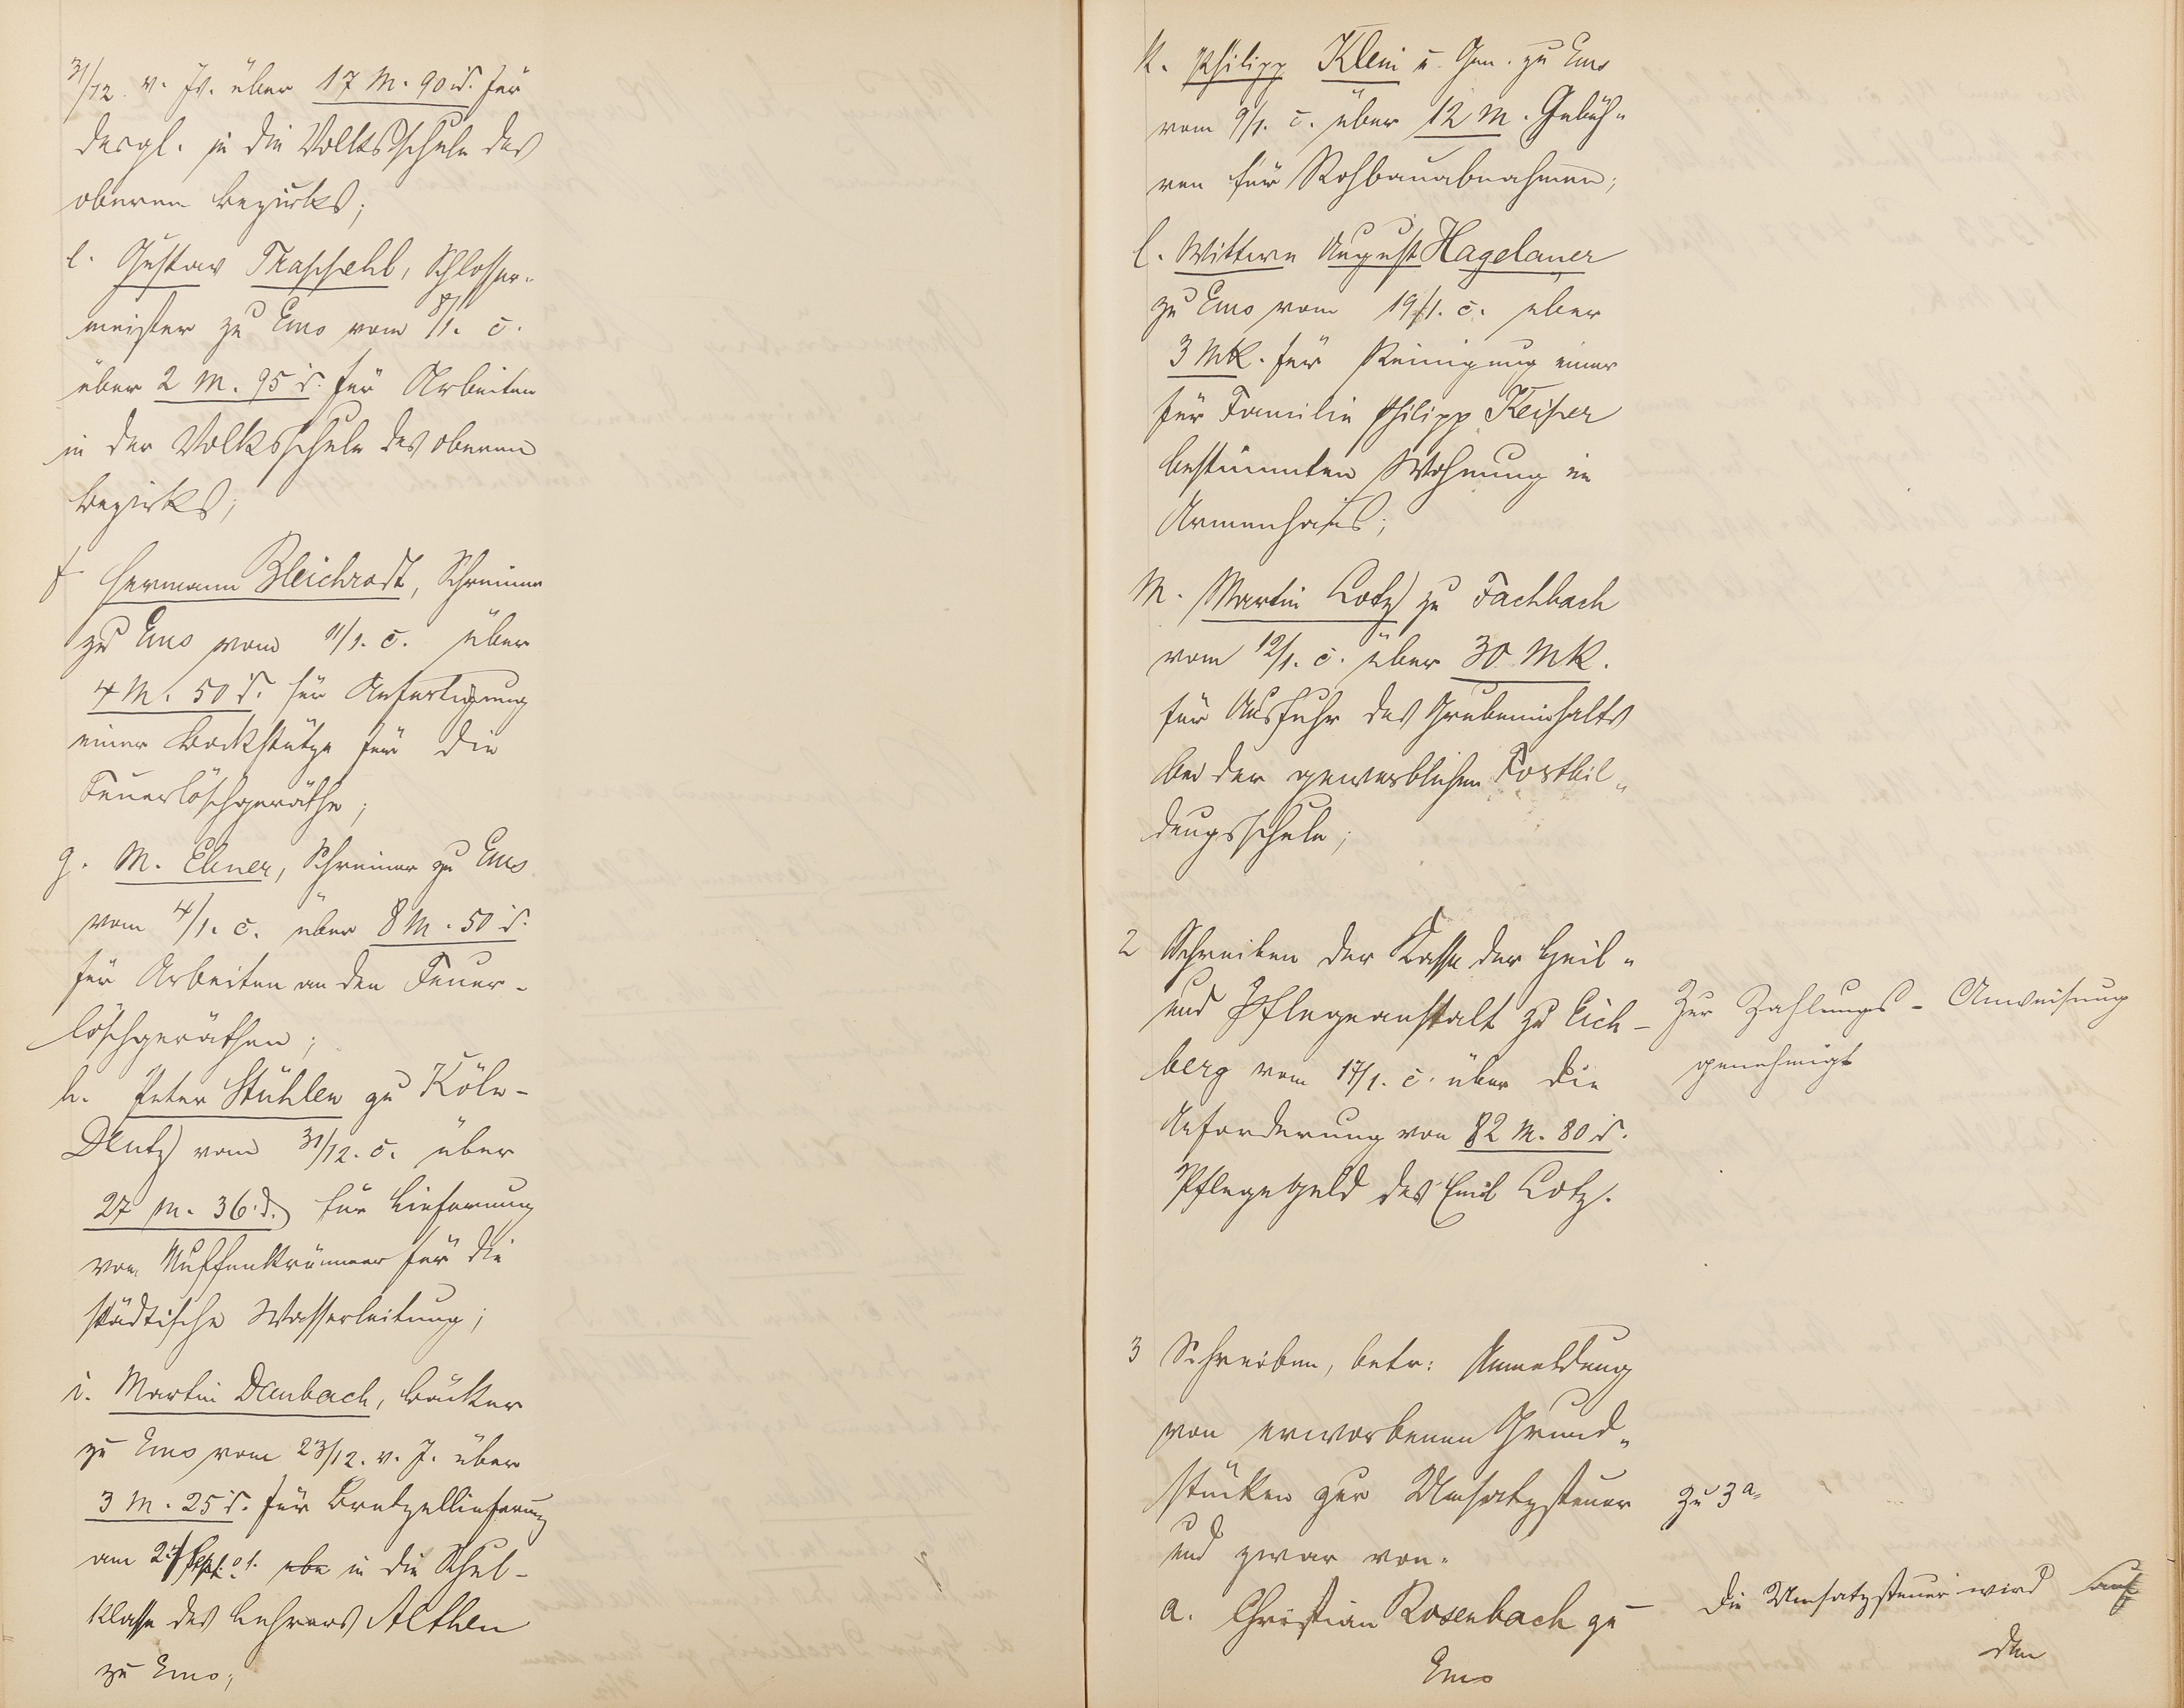 31/12. v. Js. über 17 M. 90 d. für
desgl. in die Volksschule des
oberen Bezirks;
e. Gustav Traschehl, Schlosser-
meister zu Ems vom 8/1. c.
über 2 M. 95 d. für Arbeiten
in der Volksschule des oberen
Bezirks;
f Hermann Bleichrodt, Schreiner
zu Ems vom 11/1. c. über
4 M. 50 d. für Anfertigung
einer Bockstütze für die
Feuerlöschgeräthe;
g. M. Ebner, Schreiner zu Ems
vom 4/1. c. über 8 M. 50 d.
für Arbeiten an den Feuer-
löschgeräthen;
h. Peter Stühlen zu Köln-
Deutz vom 31/12. c. über
27 M. 36 d. für Lieferung
von Muffenkrümmer für die
städtische Wasserleitung;
i. Martin Daubach, Bäcker
zu Ems vom 23/12. v. J. über
3 M. 25 d. für Bretzellieferung
am in die Schul-
klasse des Lehrers Althen
zu Ems;
k. Philipp Klein u. Gen. zu Ems
vom 9/1. c. über 12 M. Gebüh-
ren für Rohbauabnahmen;
l. Wittwe August Hagelauer
zu Ems vom 19/1. c. über
3 Mk. für Reinigung einer
für Familie Philipp Keiper
bestimmten Wohnung im
Armenhaus;
M. Martin Lotz zu Fachbach
vom 12/1. c. über 30 Mk.
für Ausfuhr des Grubeninhalts
bei der gewerblichen Fortbil-
dungsschule;
2 Schreiben der Kasse der Heil-
und Pflegeanstalt zu Eich-
berg vom 17/1. c. über die
Anforderung von 82 M. 80 d.
Pflegegeld des Emil Lotz.
Zur Zahlungs-Anweisung
genehmigt
3 Schreiben, betr: Anmeldung
von erworbenen Grund-
stücken zur Umsatzsteuer
und zwar von:
a. Christian Rosenbach zu
Ems
zu 3a.
Die Umsatzsteuer wird auf
den